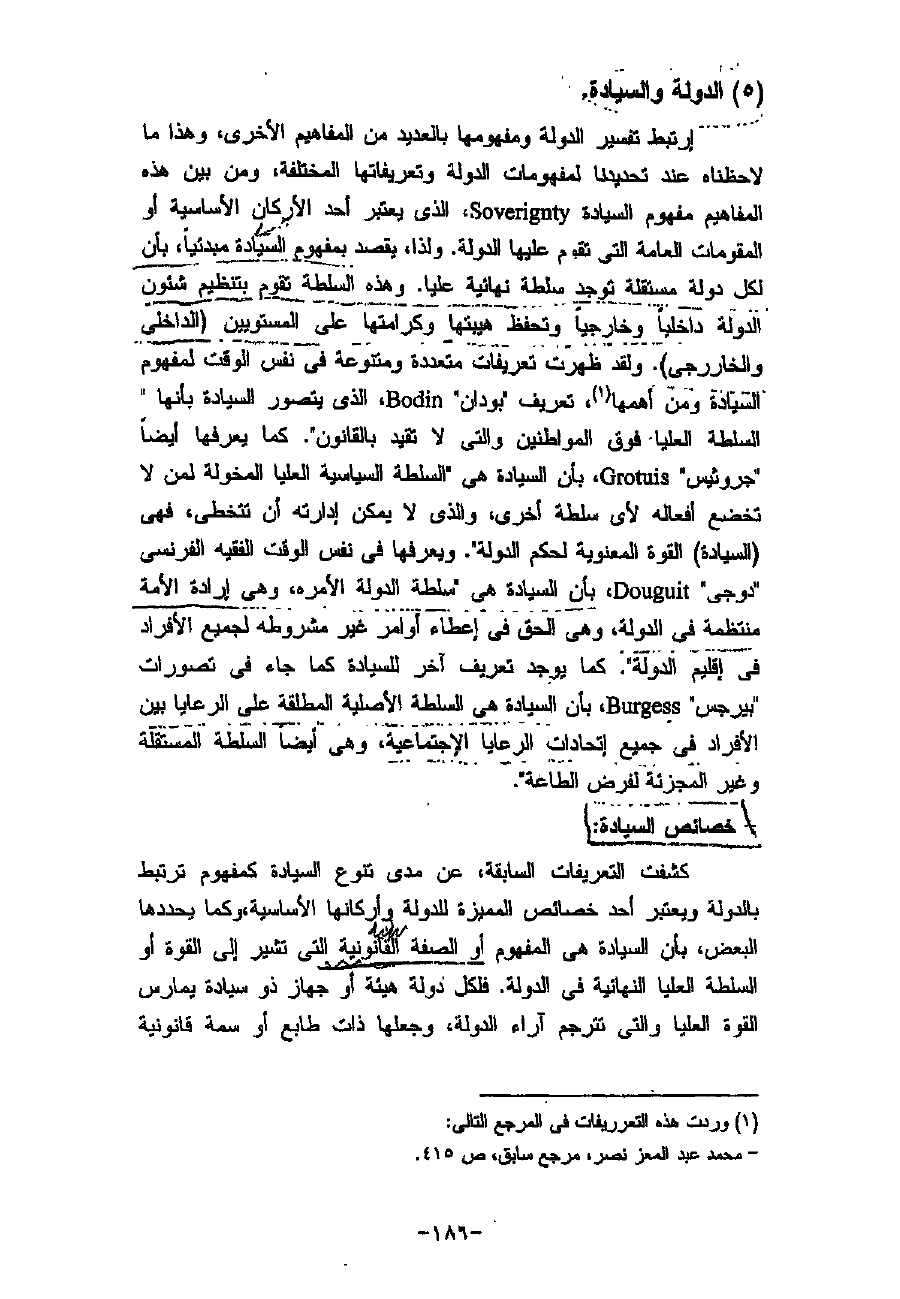 (٥) الدولة والسيادة.
إرتبط تفسير الدولة ومفهومها بالعديد من المفاهيم الأخرى، وهذا ما
لاحظناه عند تحديدنا لمفهومات الدولة وتعريفاتها المختلفة، ومن بين هذه
المفاهيم مفهوم السيادة Soverignty، الذى يعتبر أحد الأركان الأساسية أو
المقومات العامة التى تقوم عليها الدولة. ولذا، يقصد بمفهوم السيادة مبدئياً، بأن
لكل دولة مستقلة توجد سلطة نهائية عليا. وهذه السلطة تقوم بتنظيم شئون
الدولة داخلياً وخارجياً وتحفظ هيبتها وكرامتها على المستويين (الداخلى
والخاررجى). ولقد ظهرت تعريفات متعددة ومتنوعة فى نفس الوقت لمفهوم
السيادة ومن أهمها(١)، تعريف "بودان" Bodin، الذى يتصور السيادة بأنها "
السلطة العليا فوق المواطنين والتى لا تقيد بالقانون". كما يعرفها أيضاً
"جروثيس" Grotuis، بأن السيادة هى "السلطة السياسية العليا المخولة لمن لا
تخضع أفعاله لأى سلطة أخرى، والذى لا يمكن إدارته أن تتخطى، فهى
(السيادة) القوة المعنوية لحكم الدولة". ويعرفها فى نفس الوقت الفقيه الفرنسى
"دوجى" Douguit، بأن السيادة هى "سلطة الدولة الأمره، وهى إرادة الأمة
منتظمة فى الدولة، وهى الحق فى إعطاء أوامر غير مشروطه لجميع الأفراد
فى إقليم الدولة". كما يوجد تعريف آخر للسيادة كما جاء فى تصورات
"بيرجس" Burgess، بأن السيادة هى السلطة الأصلية المطلقة على الرعايا بين
الأفراد فى جميع إتحادات الرعايا الإجتماعية، وهى أيضاً السلطة المستقلة
وغير المجزئة لفرض الطاعة".
خصائص السيادة:
كشفت التعريفات السابقة، عن مدى تنوع السيادة كمفهوم ترتبط
بالدولة ويعتبر أحد خصائص المميزة للدولة وأركانها الأساسية،وكما يحددها
البعض، بأن السيادة هى المفهوم أو الصفة القانونية التى تشير إلى القوة أو
السلطة العليا النهائية فى الدولة. فلكل دولة هيئة أو جهاز ذو سيادة يمارس
القوة العليا والتى تترجم آراء الدولة، وجعلها ذات طابع أو سمة قانونية
(١) وردت هذه التعرريفات فى المرجع التالى:
- محمد عبد المعز نصر، مرجع سابق، ص ٤١٥.
-١٨٦-